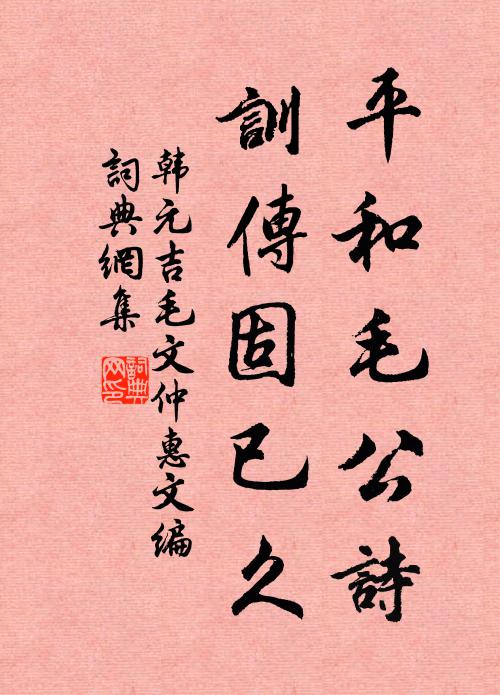 平和毛公詩
訓傳固已久
韩元吉毛文仲惠文編
詞典網集
詞典網印